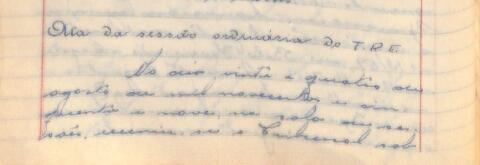 Ata da sessão ordinária do T.R.E.
No dia vinte e quatro de
agosto de mil novecentos e cin
quenta e nove, na sala de ses
sões, reuniu-se o Tribunal sob